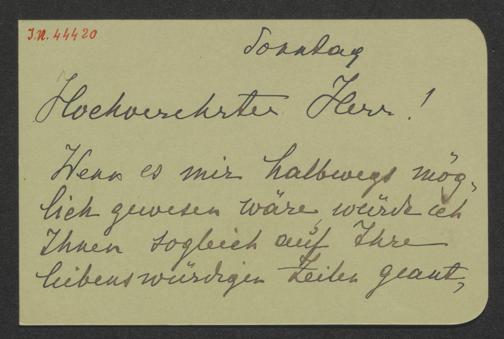 J.N. 44420
Sonntag
Hochverehrter Herr!
Wenn es mir halbwegs mög-
lich gewesen wäre würde ich
Ihnen sogleich auf Ihre
liebenswürdigen Zeilen geant-